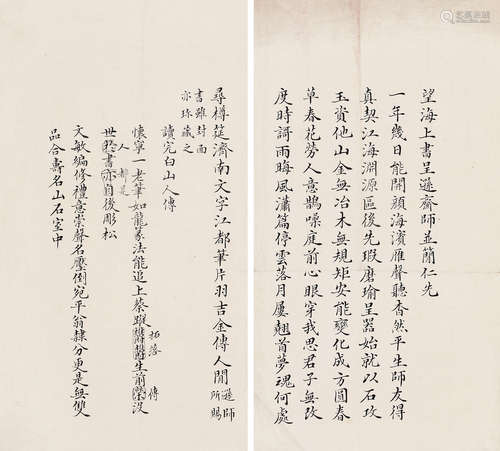 望海上書呈遜齋師並簡仁先
一年幾日能開顔海濱雁聲聽杳然平生師友得
真契江海淵源區後先瑕磨瑜呈器始就以石攻
玉資他山金無冶木無規矩安能變化成方圓春
草春花勞人意鵲噪庭前心眼穿我思君子無改
度時謌雨晦風瀟篇停雲落月屢翹首夢魂何處
尋樽筵濟南文字江都筆片羽吉金傳人間遜師所賜
書雖封面亦珍藏之
讀完白山人傳
懷寧一老筆如龍篆法能追上蔡蹤拓落生前榮没
傳
世書亦自後彫松
人都是
文敏編修禮意崇聲名壓倒宛平翁隸分更是無雙
品合壽名山石室中